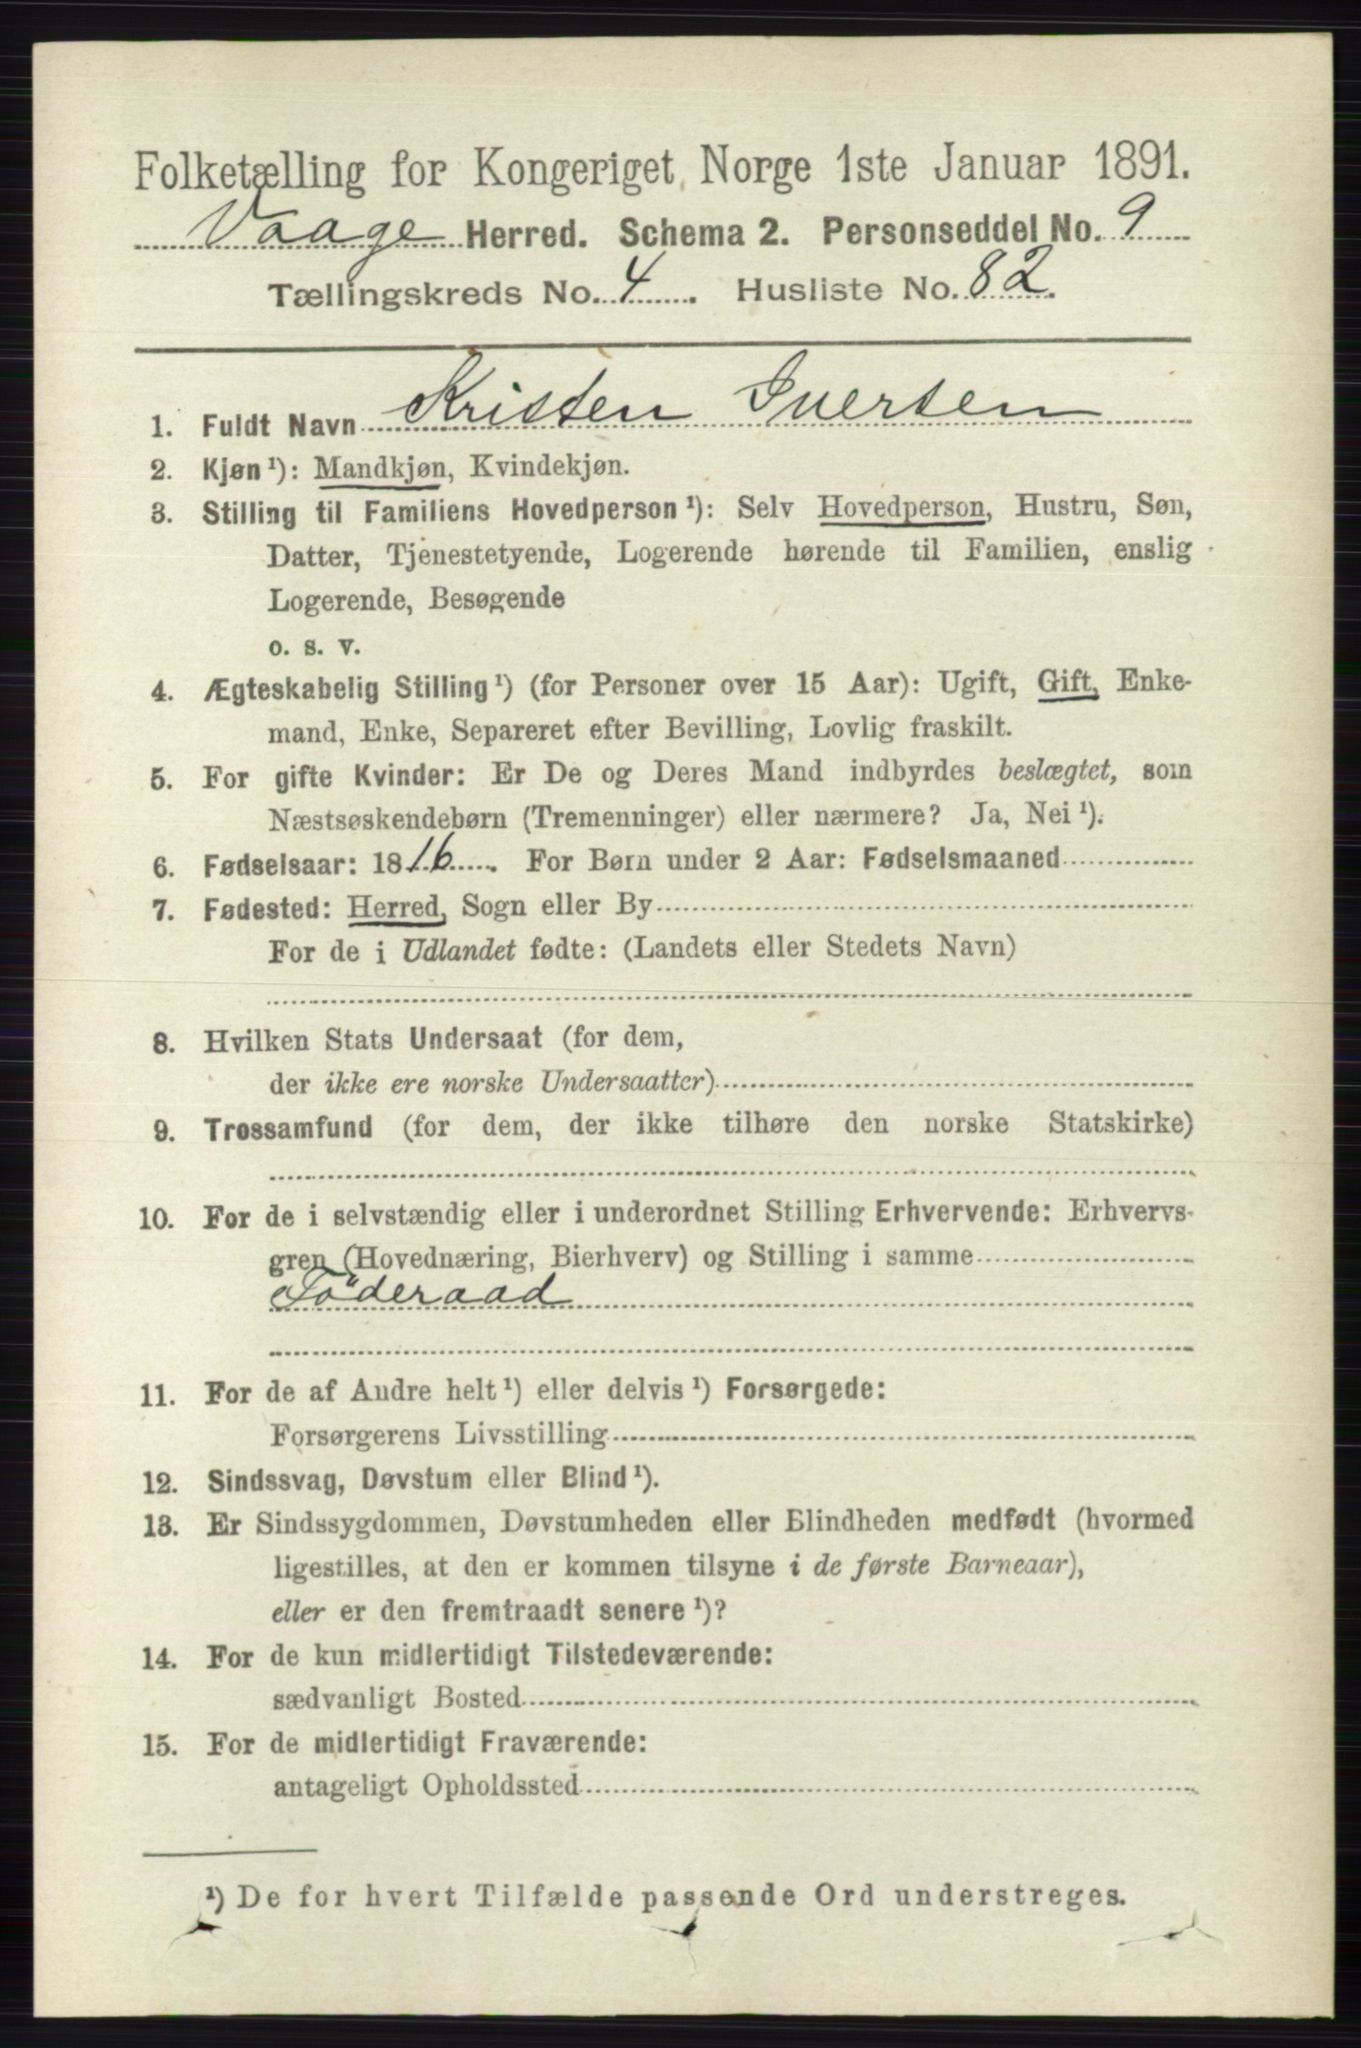 Folketælling for Kongeriget Norge 1ste Januar 1891.
Vaage Herred. Schema 2. Personseddel No. 9
Tællingskreds No. 4. Husliste No. 82.
1. Fuldt Navn Kristen Iversen
2. Kjøn¹): Mandkjøn, Kvindekjøn.
3. Stilling til Familiens Hovedperson¹): Selv Hovedperson, Hustru, Søn,
Datter, Tjenestetyende, Logerende hørende til Familien, enslig
Logerende, Besøgende
o. s. v.
4. Ægteskabelig Stilling¹) (for Personer over 15 Aar): Ugift, Gift, Enke-
mand, Enke, Separeret efter Bevilling, Lovlig fraskilt.
5. For gifte Kvinder: Er De og Deres Mand indbyrdes beslægtet, som
Næstsøskendebørn (Tremenninger) eller nærmere? Ja, Nei¹).
6. Fødselsaar: 1816. For Børn under 2 Aar: Fødselsmaaned
7. Fødested: Herred, Sogn eller By
For de i Udlandet fødte: (Landets eller Stedets Navn)
8. Hvilken Stats Undersaat (for dem,
der ikke ere norske Undersaatter)
9. Trossamfund (for dem, der ikke tilhøre den norske Statskirke)
10. For de i selvstændig eller i underordnet Stilling Erhvervende: Erhvervs-
gren (Hovednæring, Bierhverv) og Stilling i samme
Föderaad
11. For de af Andre helt¹) eller delvis¹) Forsørgede:
Forsørgerens Livsstilling
12. Sindssvag, Døvstum eller Blind¹).
13. Er Sindssygdommen, Døvstumheden eller Blindheden medfødt (hvormed
ligestilles, at den er kommen tilsyne i de første Barneaar),
eller er den fremtraadt senere¹)?
14. For de kun midlertidigt Tilstedeværende:
sædvanligt Bosted
15. For de midlertidigt Fraværende:
antageligt Opholdssted
¹) De for hvert Tilfælde passende Ord understreges.